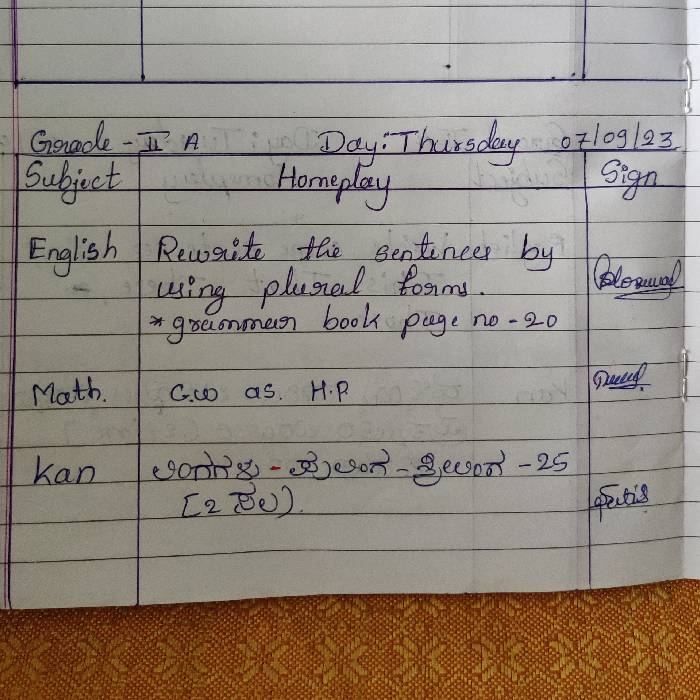 Grade - II A Day: Thursday 07/09/23
Subject Homeplay Sign
English Rewrite the sentences by
using plural forms.
* grammar book page no - 20
Math. C.W as. H.P.
Kan ಲಿಂಗಗಳು - ಪುಲಿಂಗ - ಸ್ತ್ರೀಲಿಂಗ - 25
[2 ಸಲ].